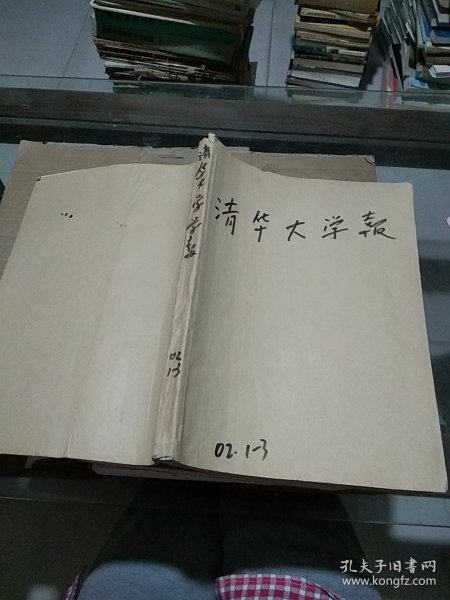 清华大学学报
02
1-3
清华大学报
02.1-3
孔夫子旧书网
www.kongfz.com